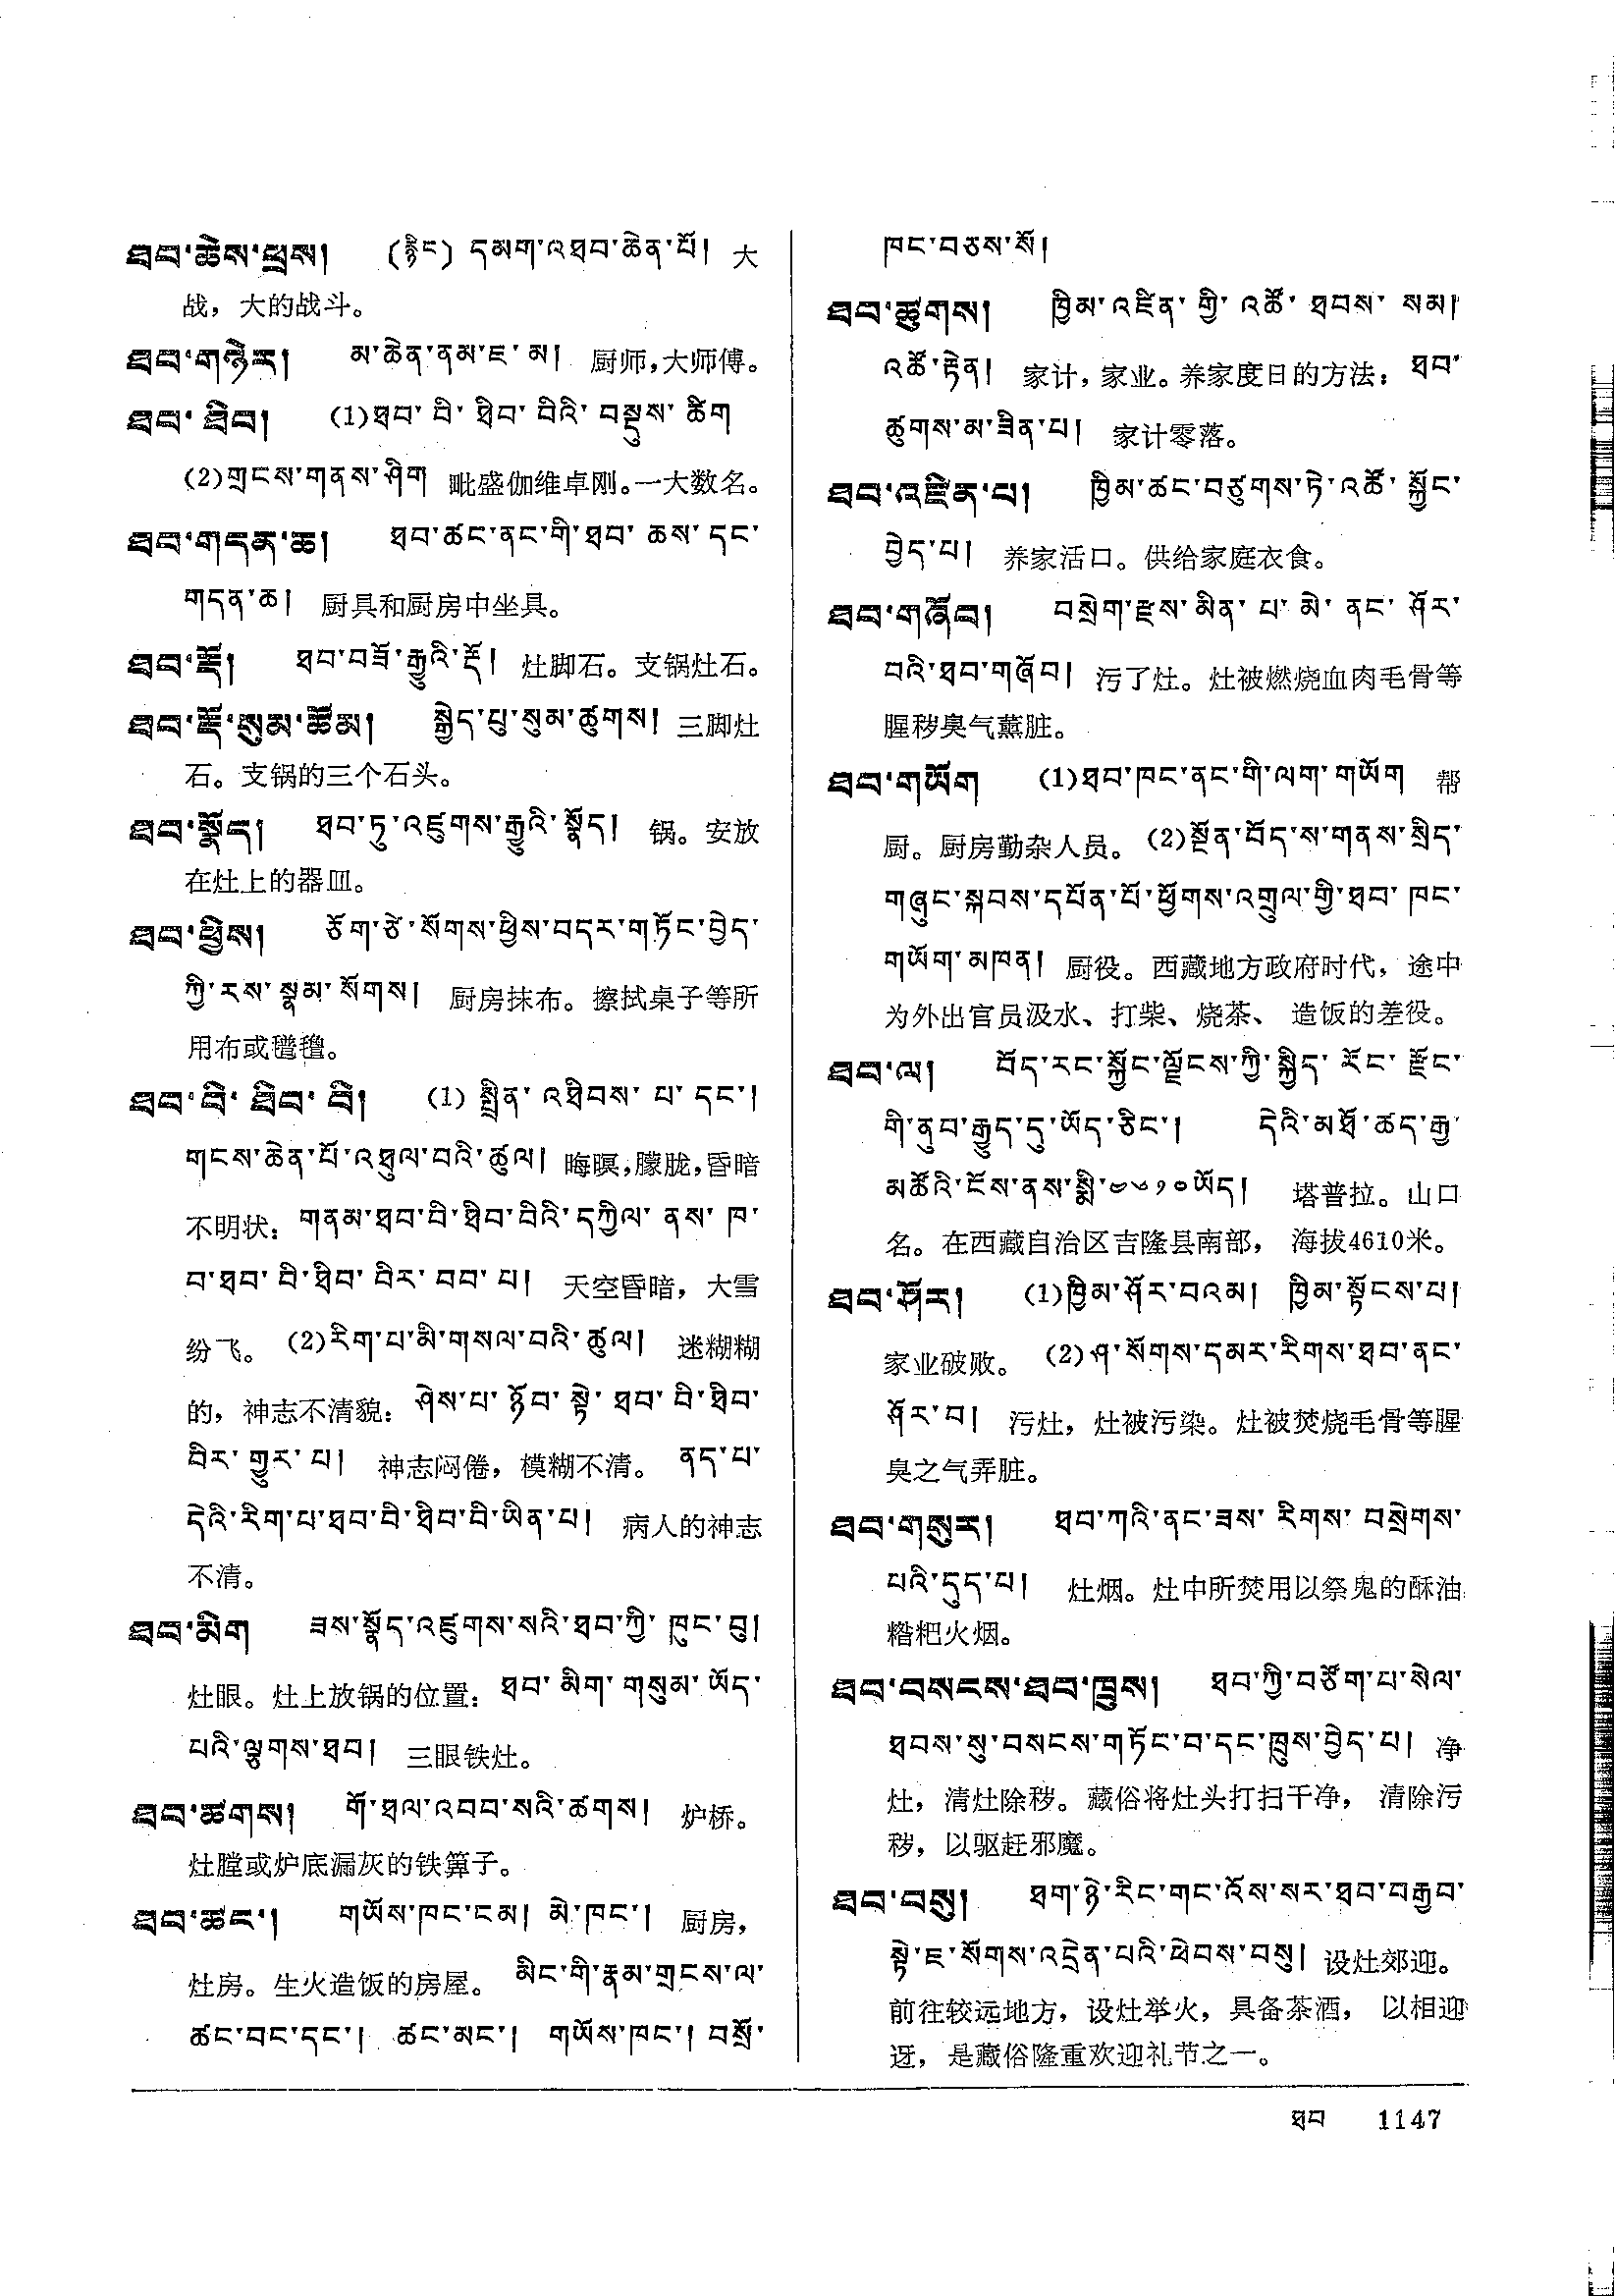 ཐབ་ཆེས་ཕྲས། (རྙིང) དམག་འཐབ་ཆེན་པོ། 大
战，大的战斗。
ཐབ་གཉེར། མ་ཆེན་ནམ་ཇ་མ། 厨师，大师傅。
ཐབ་ཐིབ། (1)ཐབ་བི་ཐིབ་བིའི་བསྡུས་ཚིག
(2)གྲངས་གནས་ཤིག 毗盛伽维卓刚。一大数名。
ཐབ་གདན་ཆ། ཐབ་ཚང་ནང་གི་ཐབ་ཆས་དང་
གདན་ཆ། 厨具和厨房中坐具。
ཐབ་རྡོ། ཐབ་བཟོ་རྒྱུའི་རྡོ། 灶脚石。支锅灶石。
ཐབ་རྡོ་སུམ་ཚོམ། སྒྱེད་པུ་སུམ་ཚུགས། 三脚灶
石。支锅的三个石头。
ཐབ་སྣོད། ཐབ་ཏུ་འཛུགས་རྒྱུའི་སྣོད། 锅。安放
在灶上的器皿。
ཐབ་ཕྱིས། ཅོག་ཙེ་སོགས་ཕྱིས་བདར་གཏོང་བྱེད་
ཀྱི་རས་སྣམ་སོགས། 厨房抹布。擦拭桌子等所
用布或氆氇。
ཐབ་བི་ཐིབ་བི། (1) སྤྲིན་འཐིབས་པ་དང་།
གངས་ཆེན་པོ་འཐུལ་བའི་ཚུལ། 晦暝，朦胧，昏暗
不明状：གནམ་ཐབ་བི་ཐིབ་བིའི་དཀྱིལ་ནས་ཁ་
བ་ཐབ་བི་ཐིབ་བིར་བབ་པ། 天空昏暗，大雪
纷飞。(2)རིག་པ་མི་གསལ་བའི་ཚུལ། 迷糊糊
的，神志不清貌：ཤེས་པ་ཉོབ་སྟེ་ཐབ་བི་ཐིབ་
བིར་གྱུར་པ། 神志闷倦，模糊不清。ནད་པ་
དེའི་རིག་པ་ཐབ་བི་ཐིབ་བི་ཡིན་པ། 病人的神志
不清。
ཐབ་མིག ཟས་སྣོད་འཛུགས་སའི་ཐབ་ཀྱི་ཁུང་བུ།
灶眼。灶上放锅的位置：ཐབ་མིག་གསུམ་ཡོད་
པའི་ལྕགས་ཐབ། 三眼铁灶。
ཐབ་ཚགས། གོ་ཐལ་འབབ་སའི་ཚགས། 炉桥。
灶膛或炉底漏灰的铁箅子。
ཐབ་ཚང་། གཡོས་ཁང་ངམ། མེ་ཁང་། 厨房，
灶房。生火造饭的房屋。 མིང་གི་རྣམ་གྲངས་ལ་
ཚང་བང་དང་། ཚང་མང་། གཡོས་ཁང་། བསྲོ་
ཁང་བཅས་སོ།
ཐབ་ཚུགས། ཁྱིམ་འཛིན་གྱི་འཚོ་ཐབས་སམ།
འཚོ་རྟེན། 家计，家业。养家度日的方法：ཐབ་
ཚུགས་མ་ཟིན་པ། 家计零落。
ཐབ་འཛིན་པ། ཁྱིམ་ཚང་བཙུགས་ཏེ་འཚོ་སྐྱོང་
བྱེད་པ། 养家活口。供给家庭衣食。
ཐབ་གཞོབ། བསྲེག་རྫས་མིན་པ་མེ་ནང་ཤོར་
བའི་ཐབ་གཞོབ། 污了灶。灶被燃烧血肉毛骨等
腥秽臭气薰脏。
ཐབ་གཡོག (1)ཐབ་ཁང་ནང་གི་ལག་གཡོག 帮
厨。厨房勤杂人员。(2)སྔོན་བོད་ས་གནས་སྲིད་
གཞུང་སྐབས་དཔོན་པོ་ཕྱོགས་འགྲུལ་གྱི་ཐབ་ཁང་
གཡོག་མཁན། 厨役。西藏地方政府时代，途中
为外出官员汲水、打柴、烧茶、造饭的差役。
ཐབ་ལ། བོད་རང་སྐྱོང་ལྗོངས་ཀྱི་སྐྱིད་རོང་རྫོང་
གི་ནུབ་རྒྱུད་དུ་ཡོད་ཅིང་། དེའི་མཐོ་ཚད་རྒྱ་
མཚོའི་ངོས་ནས་སྨི་༤༦༡༠ཡོད། 塔普拉。山口
名。在西藏自治区吉隆县南部，海拔4610米。
ཐབ་ཤོར། (1)ཁྱིམ་ཤོར་བའམ། ཁྱིམ་སྟོངས་པ།
家业破败。(2)ཤ་སོགས་དམར་རིགས་ཐབ་ནང་
ཤོར་བ། 污灶，灶被污染。灶被焚烧毛骨等腥
臭之气弄脏。
ཐབ་གསུར། ཐབ་ཀའི་ནང་ཟས་རིགས་བསྲེགས་
པའི་དུད་པ། 灶烟。灶中所焚用以祭鬼的酥油
糌粑火烟。
ཐབ་བསངས་ཐབ་ཁྲུས། ཐབ་ཀྱི་བཙོག་པ་སེལ་
ཐབས་སུ་བསངས་གཏོང་བ་དང་ཁྲུས་བྱེད་པ། 净
灶，清灶除秽。藏俗将灶头打扫干净，清除污
秽，以驱赶邪魔。
ཐབ་བསུ། ཐག་ཉེ་རིང་གང་འོས་སར་ཐབ་བརྒྱབ་
སྟེ་ཇ་སོགས་འདྲེན་པའི་ཕེབས་བསུ། 设灶郊迎。
前往较远地方，设灶举火，具备茶酒，以相迎
迓，是藏俗隆重欢迎礼节之一。
ཐབ 1147